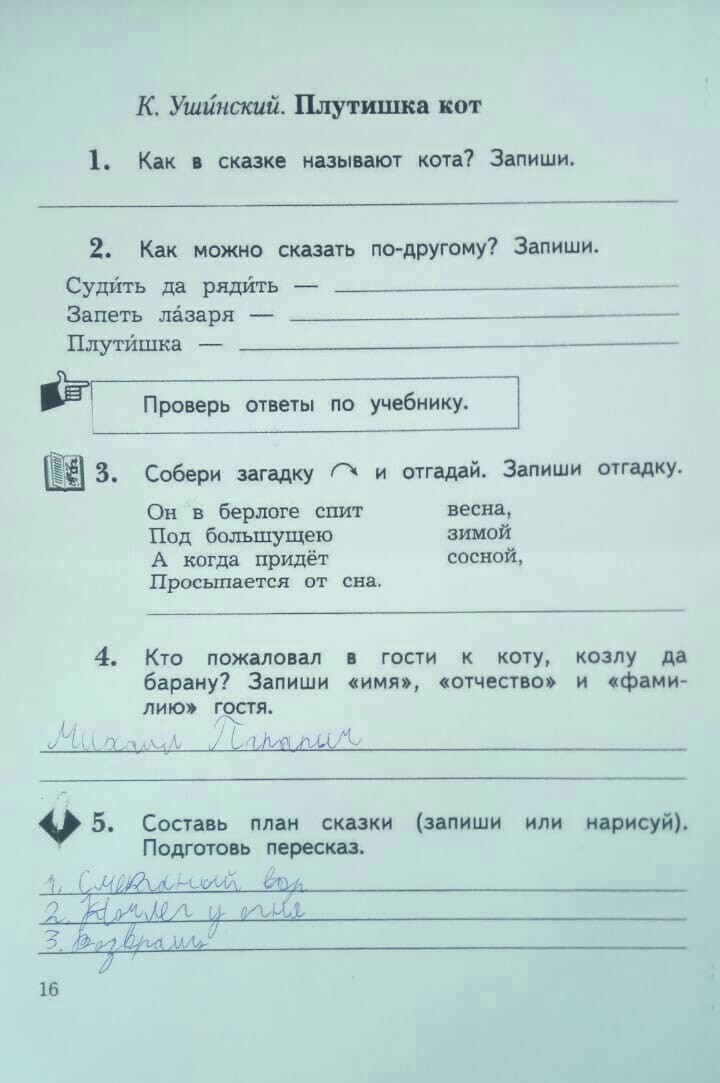 К. Уши́нский. Плутишка кот
1. Как в сказке называют кота? Запиши.
2. Как можно сказать по-другому? Запиши.
Суди́ть да ряди́ть —
Запеть ла́заря —
Плути́шка —
Проверь ответы по учебнику.
3. Собери загадку и отгадай. Запиши отгадку.
Он в берлоге спит весна,
Под большущею зимой
А когда придёт сосной,
Просыпается от сна.
4. Кто пожаловал в гости к коту, козлу да
барану? Запиши «имя», «отчество» и «фами-
лию» гостя.
Михаил
5. Составь план сказки (запиши или нарисуй).
Подготовь пересказ.
1. Сметанный вор
2. Ночлег у огня
3. Возвращ
16